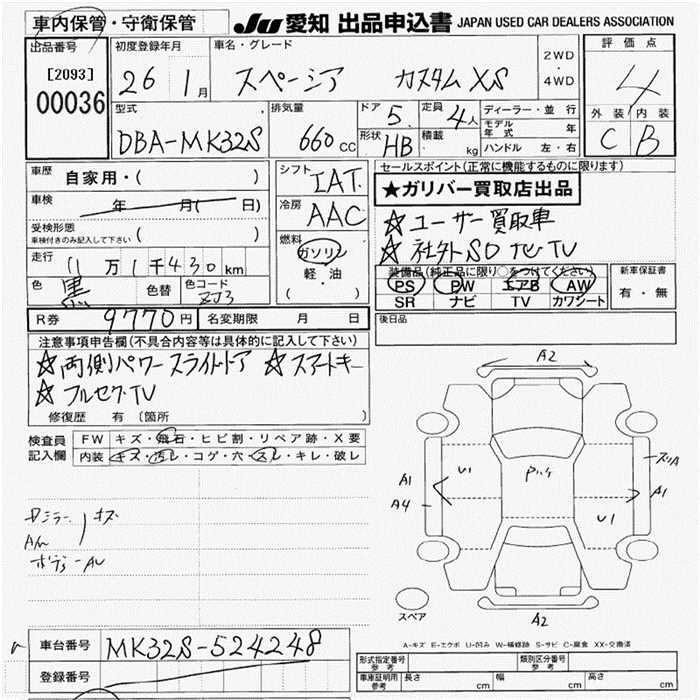 車内保管・守衛保管
JU 愛知 出品申込書 JAPAN USED CAR DEALERS ASSOCIATION
出品番号
[2093]
00036
初度登録年月
26 1月
車名・グレード
スペーシア カスタムXS
2WD
・
4WD
評価点
4
外装 内装
C B
型式
DBA-MK32S
排気量
660 CC
ドア 5
形状 HB
定員 4人
積載 kg
ディーラー・並行
モデル年式 年
ハンドル 左・右
車歴 自家用・( )
車検 年 月( 日)
受検形態
車検付きのみ記入して下さい ( )
走行 11万1千430km
色 黒 色替 色コード ZJ3
シフト IAT
冷房 AAC
燃料
ガソリン
・
軽・油
( )
セールスポイント(正常に機能するものに限ります)
★ガリバー買取店出品
☆ユーザー買取車
☆社外SDナビTV
装備品(純正品に限り○をつけてください)
PS PW エアB AW
SR ナビ TV カワシート
新車保証書
有・無
R券 9770円 名変期限 月 日
後日品
注意事項申告欄(不具合内容等は具体的に記入して下さい)
☆両側パワースライドドア ☆スマートキー
☆フルセグTV
修復歴 有 〔箇所
検査員記入欄
FW キズ・飛石・ヒビ割・リペア跡・X要
内装 キズ・汚レ・コゲ・穴・スレ・キレ・破レ
キズ
A/W
ボデーAU
A2
U1
Pハゲ
A1
A4
スリA
A1
U1
A2
スペア
A-キズ E-エクボ U-凹み W-補修跡 S-サビ C-腐食 XX-交換済
車台番号 MK32S-524248
登録番号
形式指定番号
参考
類別区分番号
参考
車庫証明用
参考
長さ cm 幅 cm 高さ cm